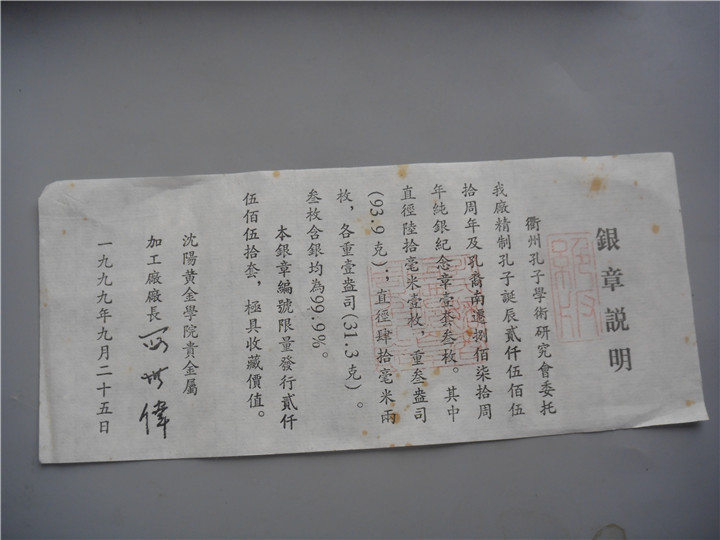 銀章説明
衢州孔子學術研究會委托
我廠精制孔子誕辰貳仟伍佰伍
拾周年及孔裔南遷捌佰柒拾周
年純銀紀念章壹套叁枚。其中
直徑陸拾毫米壹枚，重叁盎司
(93.9克)；直徑肆拾毫米兩
枚，各重壹盎司(31.3克)。
叁枚含銀均為99.9%。
本銀章編號限量發行貳仟
伍佰伍拾套，極具收藏價值。
沈陽黄金學院貴金屬
加工廠廠長
一九九九年九月二十五日